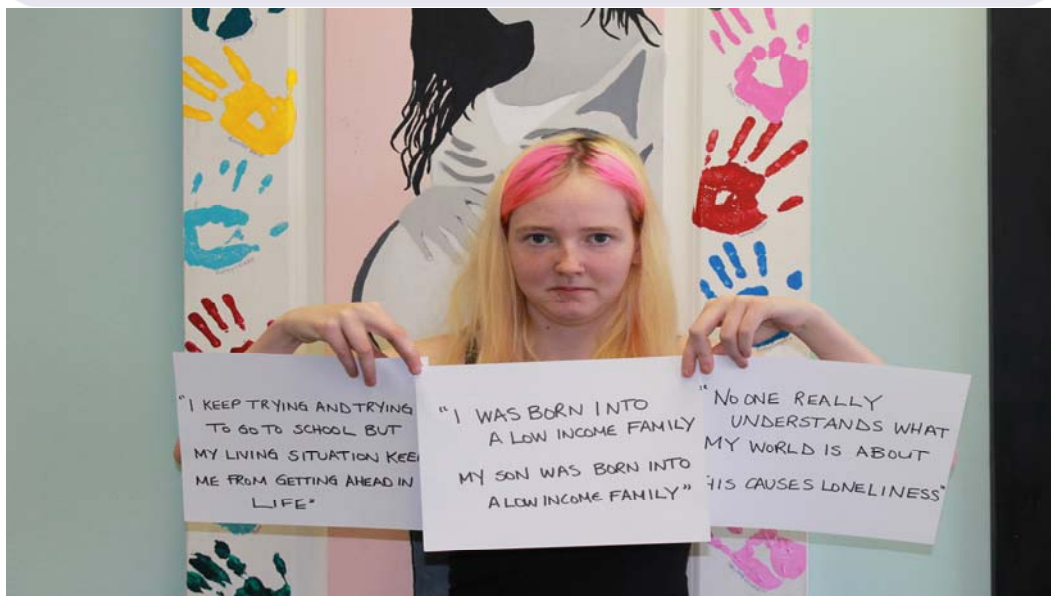 "I KEEP TRYING AND TRYING
TO GO TO SCHOOL BUT
MY LIVING SITUATION KEE
ME FROM GETTING AHEAD IN
LIFE"
"I WAS BORN INTO
A LOW INCOME FAMILY
MY SON WAS BORN INTO
A LOW INCOME FAMILY"
"NO ONE REALLY
UNDERSTANDS WHAT
MY WORLD IS ABOUT
HIS CAUSES LONELINESS"